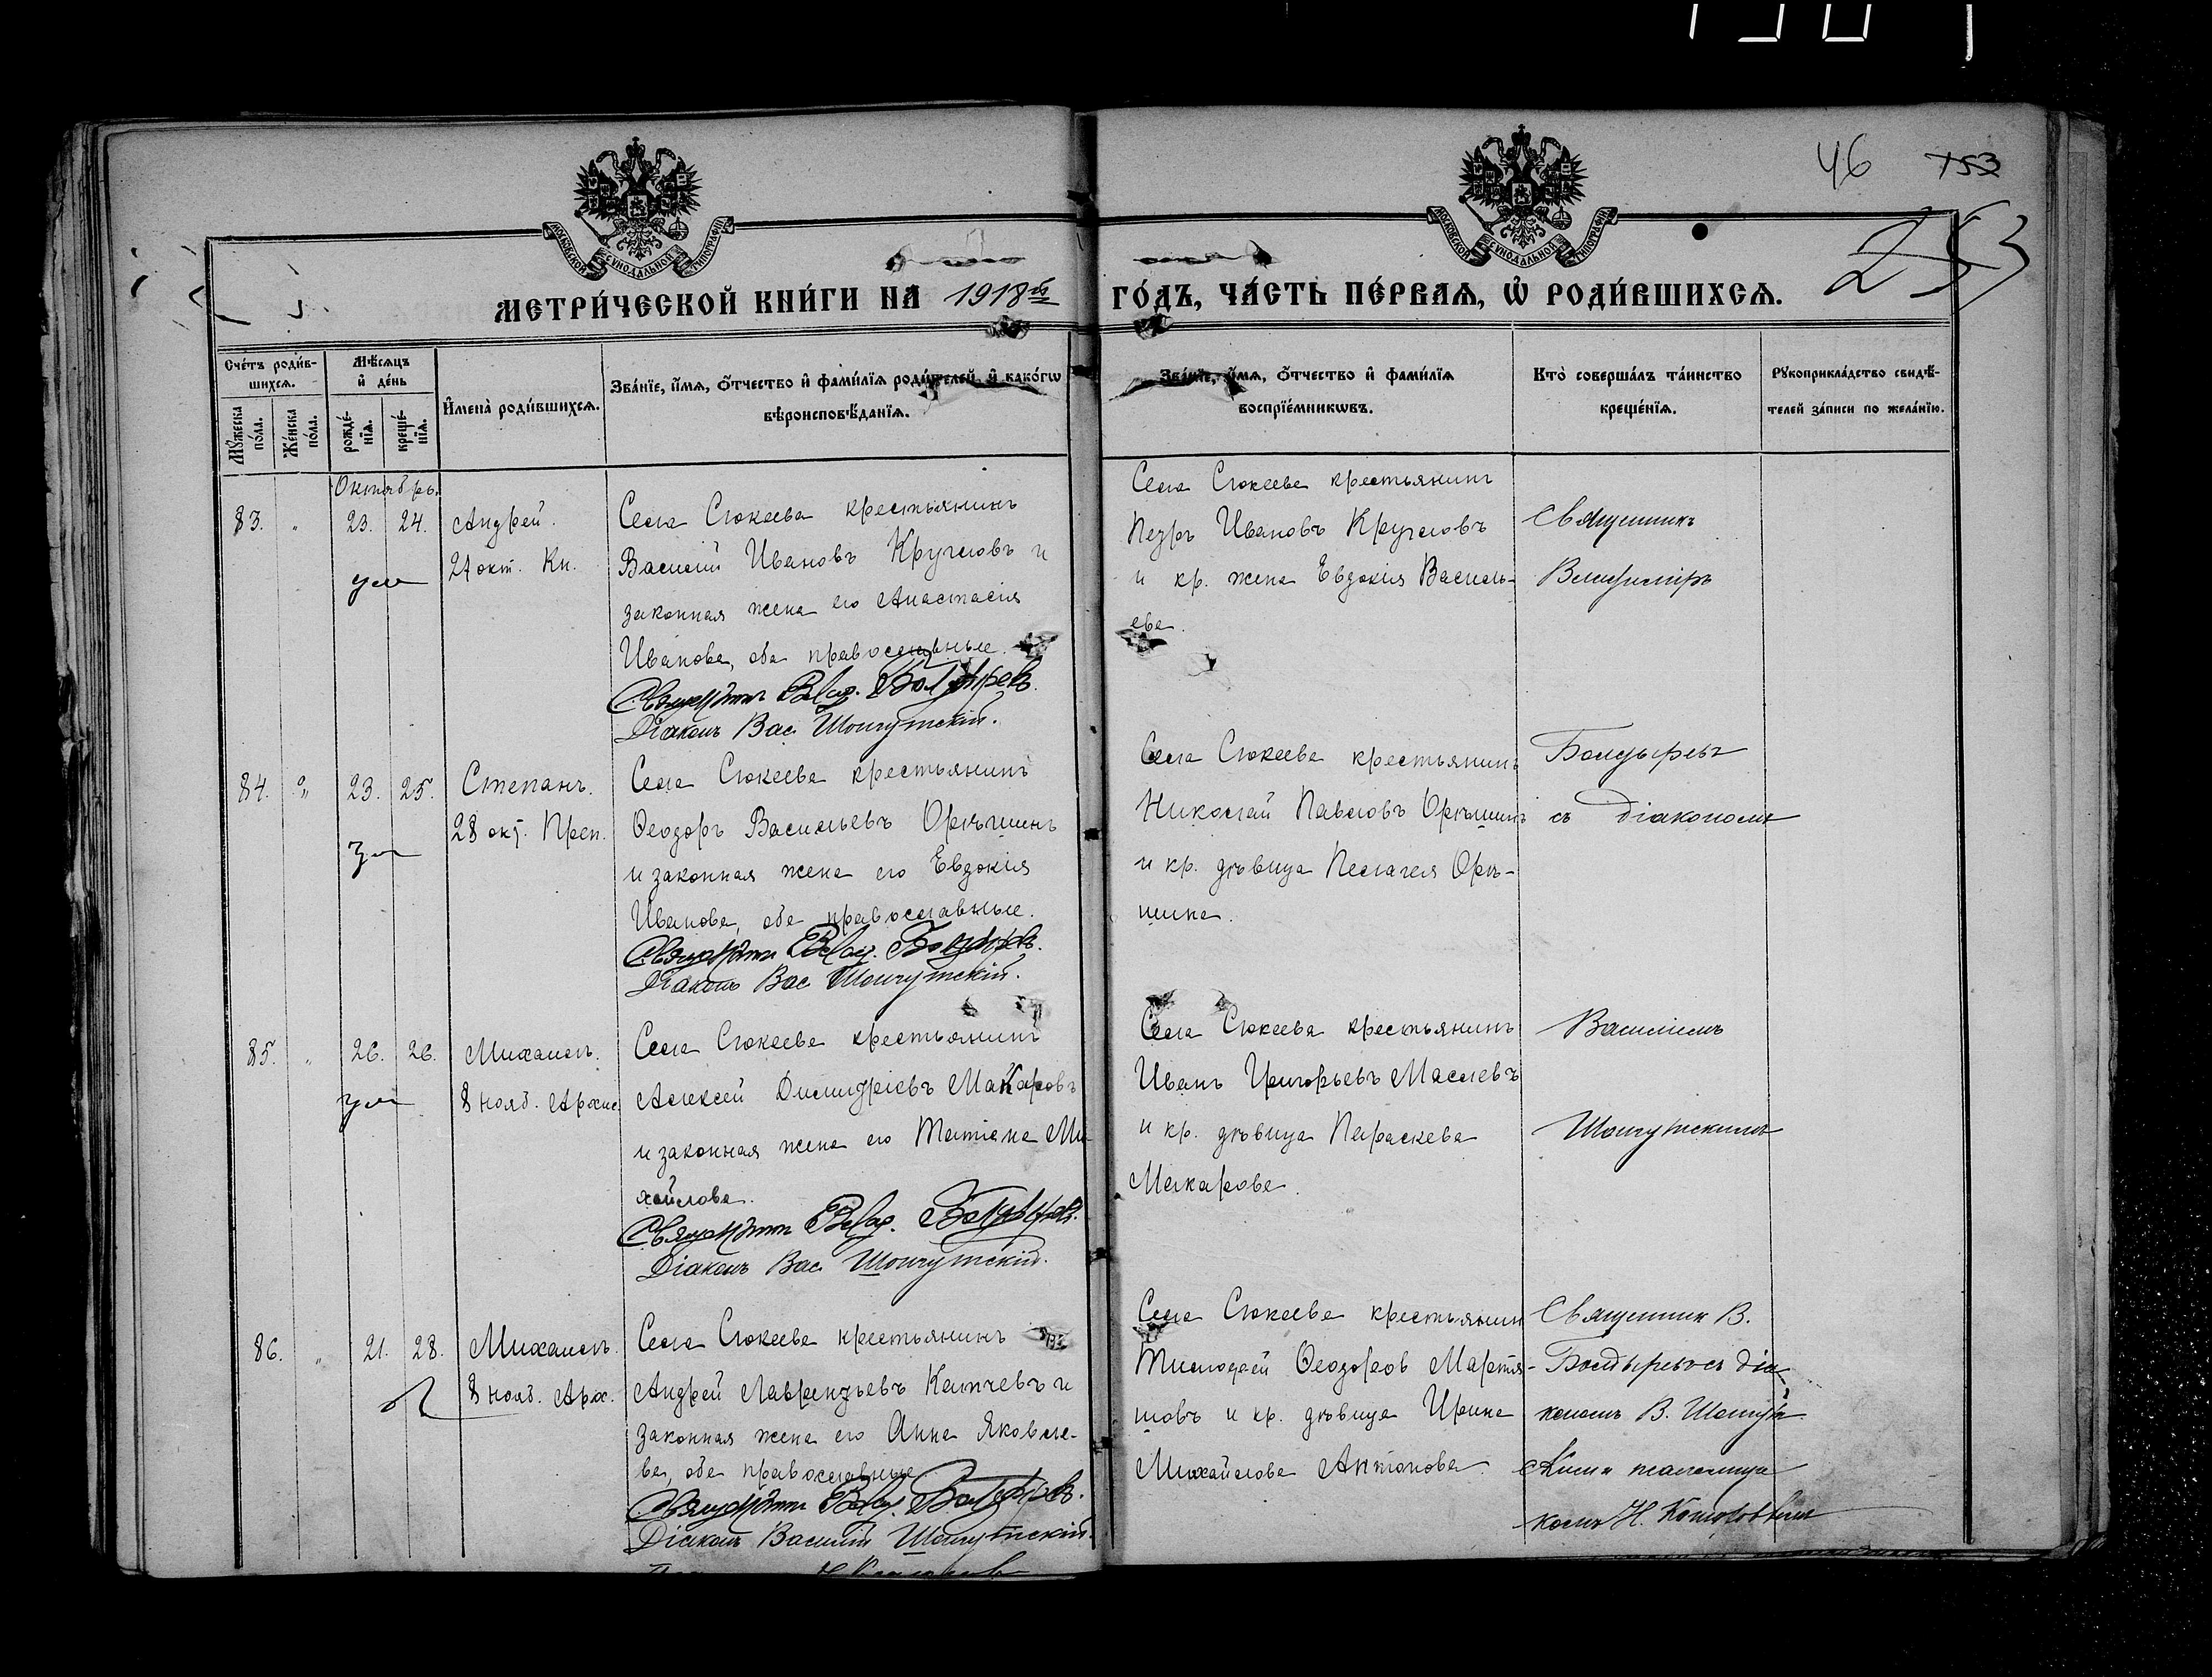 46 753
253
МОСКОВСКОЙ СѴНОДАЛЬНОЙ ТИПОГРАФІИ
МОСКОВСКОЙ СѴНОДАЛЬНОЙ ТИПОГРАФІИ
МЕТРИ́ЧЕСКОЙ КНИ́ГИ НА 1918й ГО́ДЪ, ЧА́СТЬ ПЕ́РВАѦ, Ѡ҆ РОДИ́ВШИХСѦ.
Сче́тъ роди́в-
шихсѧ.
Мꙋ́жеска по́ла.
Же́нска по́ла.
Мѣ́сѧцъ
и҆ де́нь
рожде́-
нїѧ.
креще́-
нїѧ.
И҆мена̀ роди́вшихсѧ.
Зва́нїе, и҆́мѧ, ѻ҆́тчество и҆ фами́лїѧ роди́телей, и҆ како́гѡ
вѣроисповѣ́данїѧ.
Зва́нїе, и҆́мѧ, ѻ҆́тчество и҆ фами́лїѧ
воспрїе́мникѡвъ.
Кто̀ соверша́лъ та́инство
креще́нїѧ.
Рꙋкоприкла́дство свидѣ́-
телей за́писи по жела́нїю.
Октябрь.
83. " 23. 24. Андрей.
24 окт. Кн.
ум
Села Сюкеева крестьянинъ
Василій Ивановъ Кругловъ и
законная жена его Анастасія
Иванова, оба православные.
Священникъ Влад. Болдырев.
Діаконъ Вас. Шонгутскій.
Села Сюкеева крестьянинъ
Петръ Ивановъ Кругловъ
и кр. жена Евдокія Василь-
ева.
Священникъ
Владиміръ
84. " 23. 25. Степанъ.
28 окт. Преп.
ум
Села Сюкеева крестьянинъ
Ѳеодоръ Васильевъ Орѣшинъ
и законная жена его Евдокія
Иванова, оба православные.
Священникъ Влад. Болдырев.
Діаконъ Вас. Шонгутскій.
Села Сюкеева крестьянинъ
Николай Павловъ Орѣшинъ
и кр. дѣвица Пелагея Орѣ-
шина.
Болдыревъ
съ діакономъ
85. " 26. 26. Михаилъ.
8 нояб. Архис
ум
Села Сюкеева крестьянинъ
Алексей Димитріевъ Макаровъ
и законная жена его Татіана Ми-
хайлова.
Священникъ Влад. Болдырев.
Діаконъ Вас. Шонгутскій.
Села Сюкеева крестьянинъ
Иванъ Григорьевъ Маслевъ
и кр. дѣвица Параскева
Макарова.
Василіемъ
Шонгутскимъ
86. " 21. 28. Михаилъ.
8 нояб. Арх.
Села Сюкеева крестьянинъ
Андрей Лаврентьевъ Капчевъ и
законная жена его Анна Яковле-
ва, оба православные.
Священникъ Влад. Болдырев.
Діаконъ Василій Шонгутскій.
Села Сюкеева крестьянин
Тимофей Ѳеодоров Мартя-
шовъ и кр. дѣвица Ирина
Михайлова Антонова.
Священник В.
Болдырев съ діа
кономъ В. Шонгут
псаломщи
комъ Н.